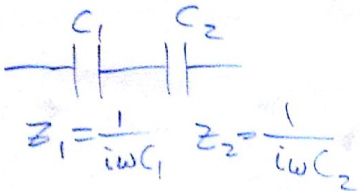 C₁ C₂
z₁ = 1/(iωC₁) z₂ = 1/(iωC₂)